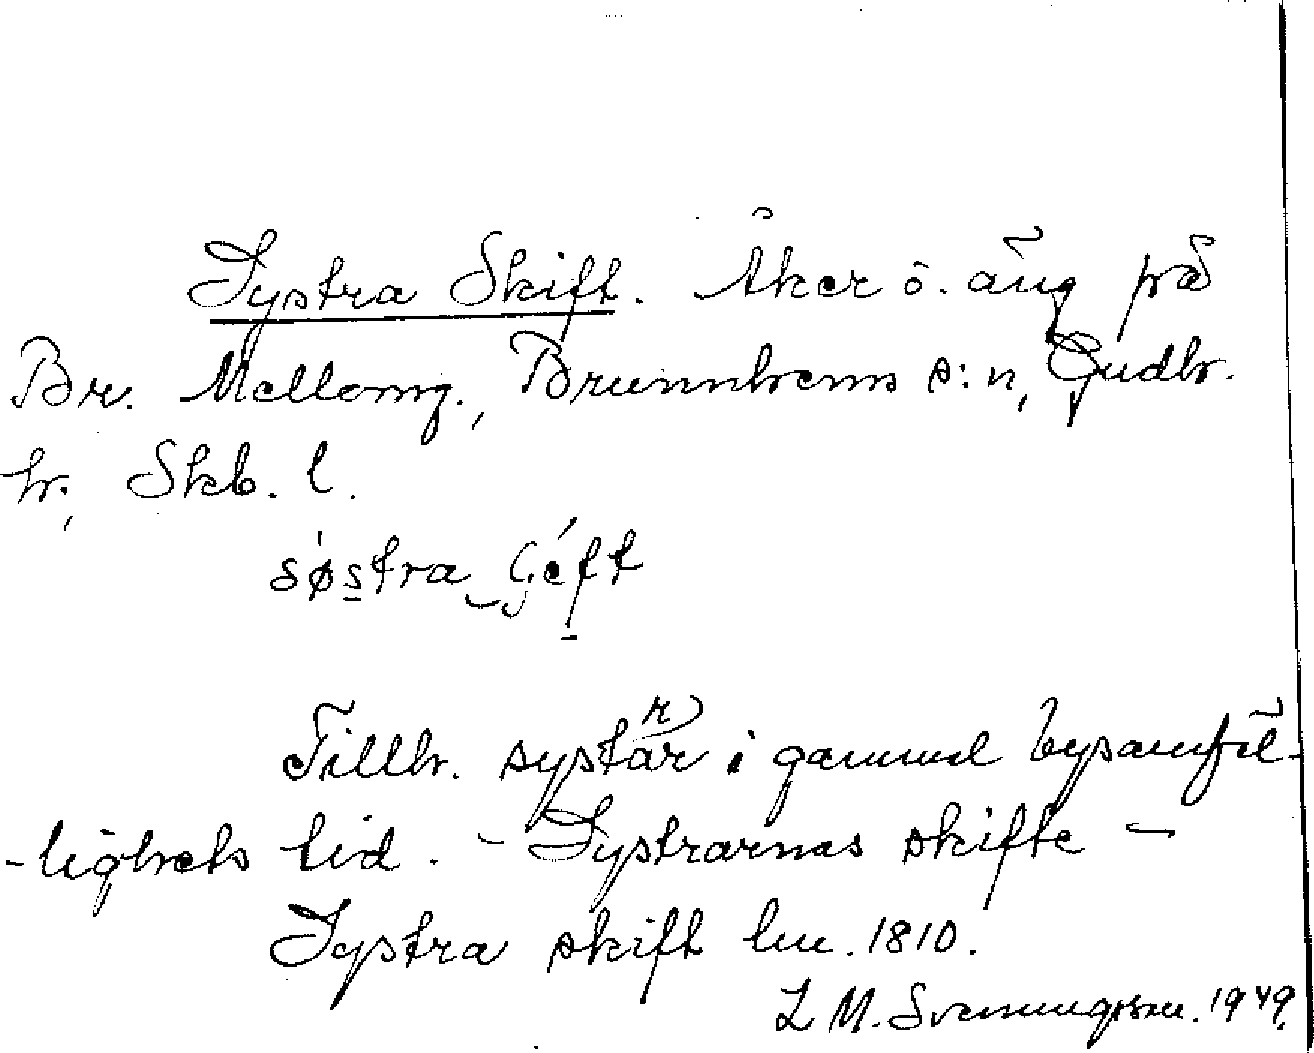 Systra Skift. Åker o. äng på
Br. Mellomg., Brunnhems s:n, Gudh.
h., Skb. l.
søstra
Tillh. systrar i gammal bysamfäl-
-lighets tid. - Systrarnas skifte -
Systra skift lm. 1810.
L M. Svenungsson. 1949.